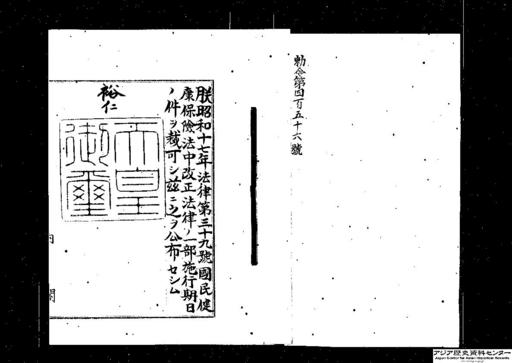 勅令第四百五十六號
朕昭和十七年法律第三十九號國民健
康保險法中改正法律ノ一部施行期日
ノ件ヲ裁可シ茲ニ之ヲ公布セシム
裕仁
天皇
御璽
内閣
アジア歴史資料センター
Japan Center for Asian Historical Records